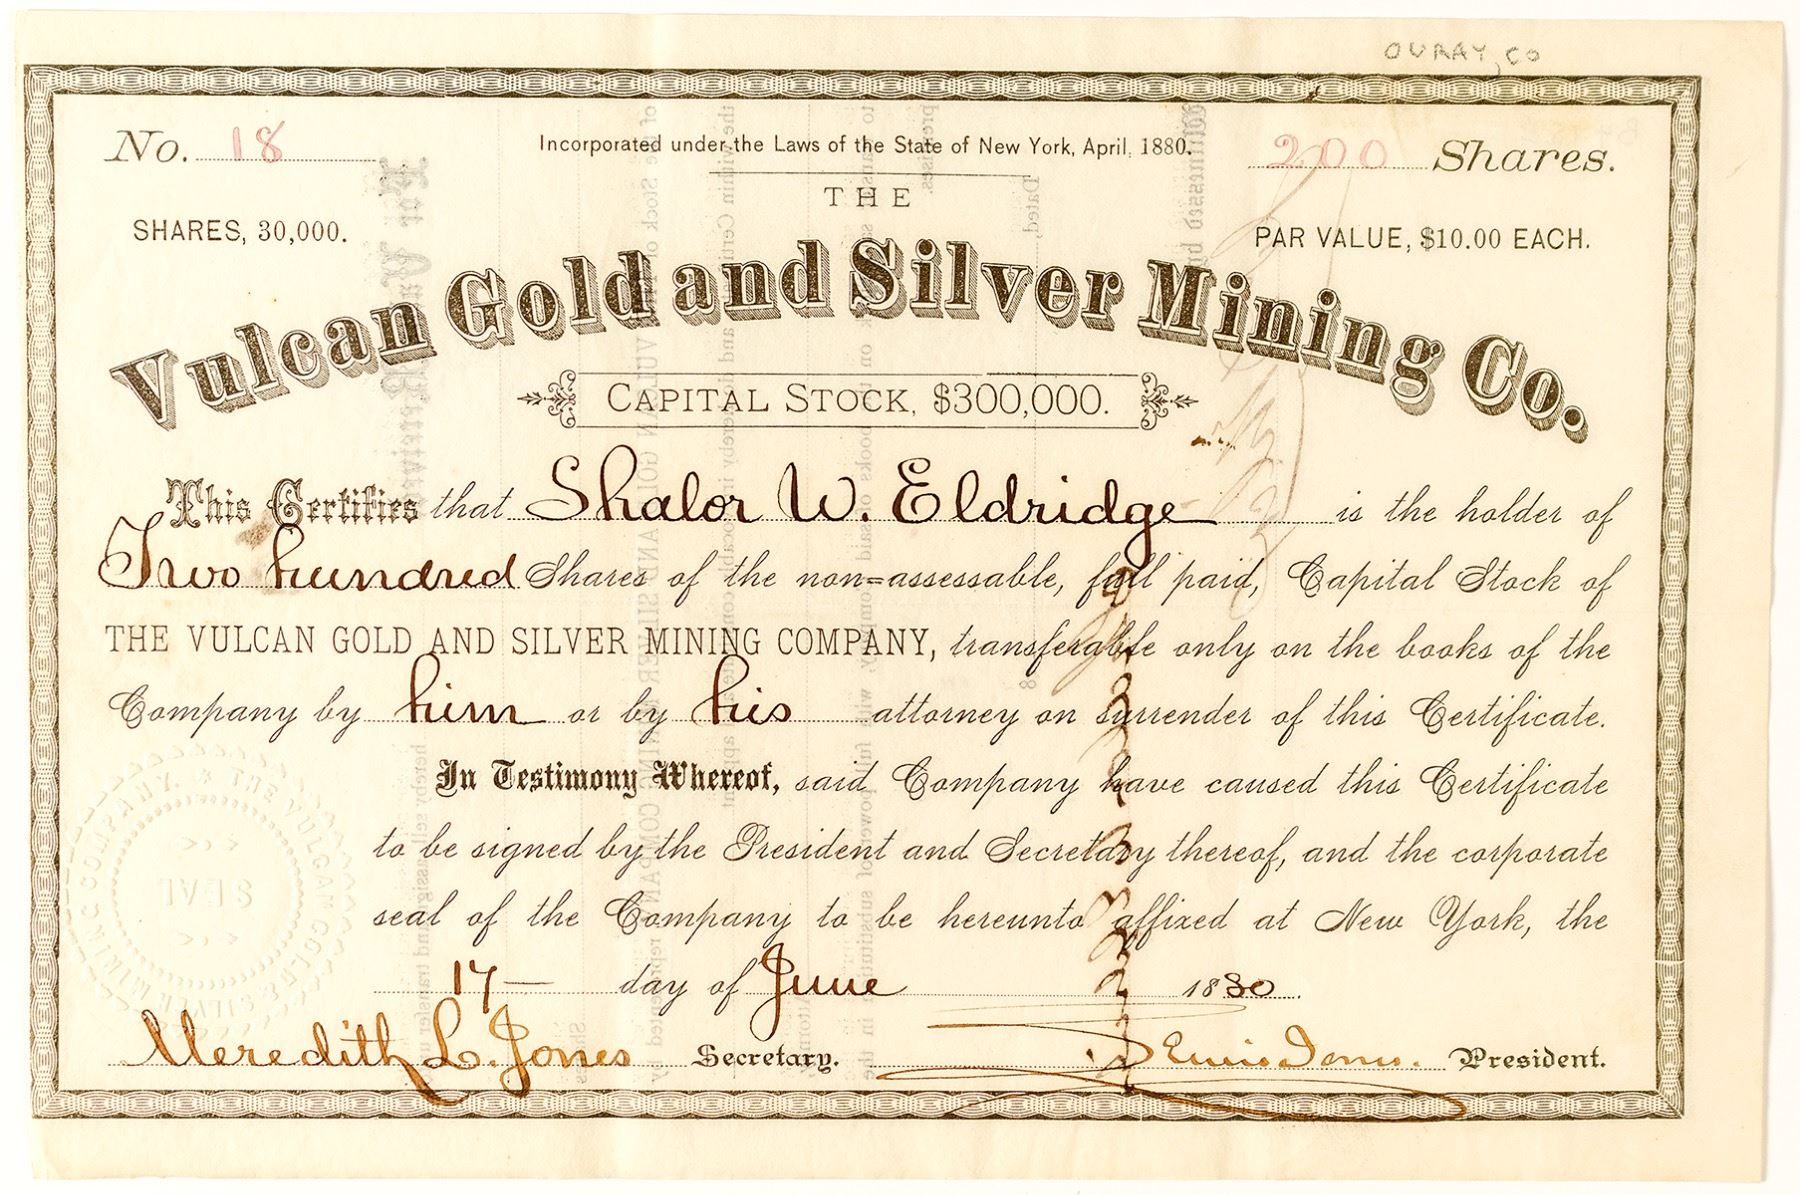 OURAY, CO
No. 18
Incorporated under the Laws of the State of New York, April, 1880.
200 Shares.
THE
SHARES, 30,000.
PAR VALUE, $10.00 EACH.
Vulcan Gold and Silver Mining Co.
CAPITAL STOCK, $300,000.
This Certifies that Shalor W. Eldridge is the holder of
Two hundred Shares of the non=assessable, full paid, Capital Stock of
THE VULCAN GOLD AND SILVER MINING COMPANY, transferable only on the books of the
Company by him or by his attorney on surrender of this Certificate.
In Testimony Whereof, said Company have caused this Certificate
to be signed by the President and Secretary thereof, and the corporate
seal of the Company to be hereunto affixed at New York, the
17- day of June 1880.
Meredith L. Jones Secretary. President.
THE VULCAN GOLD & SILVER MINING COMPANY.
SEAL